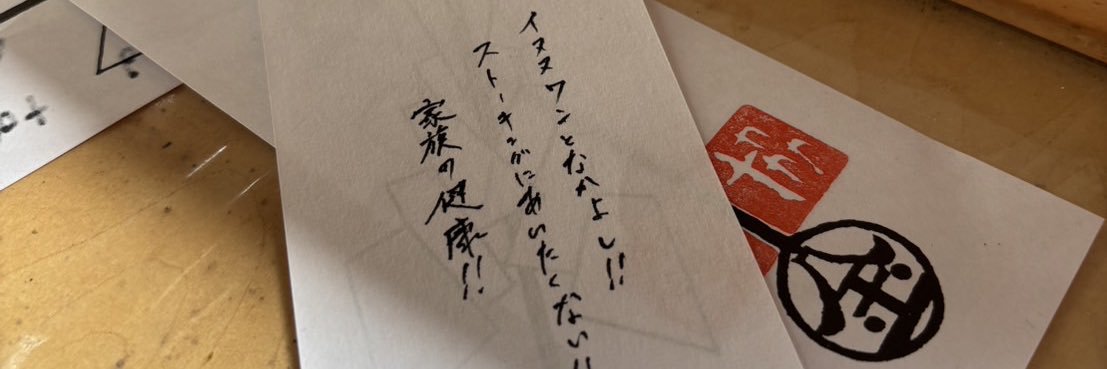 イヌヌワンとなかよし!!
ストーキングにあいたくない!!
家族の健康!!